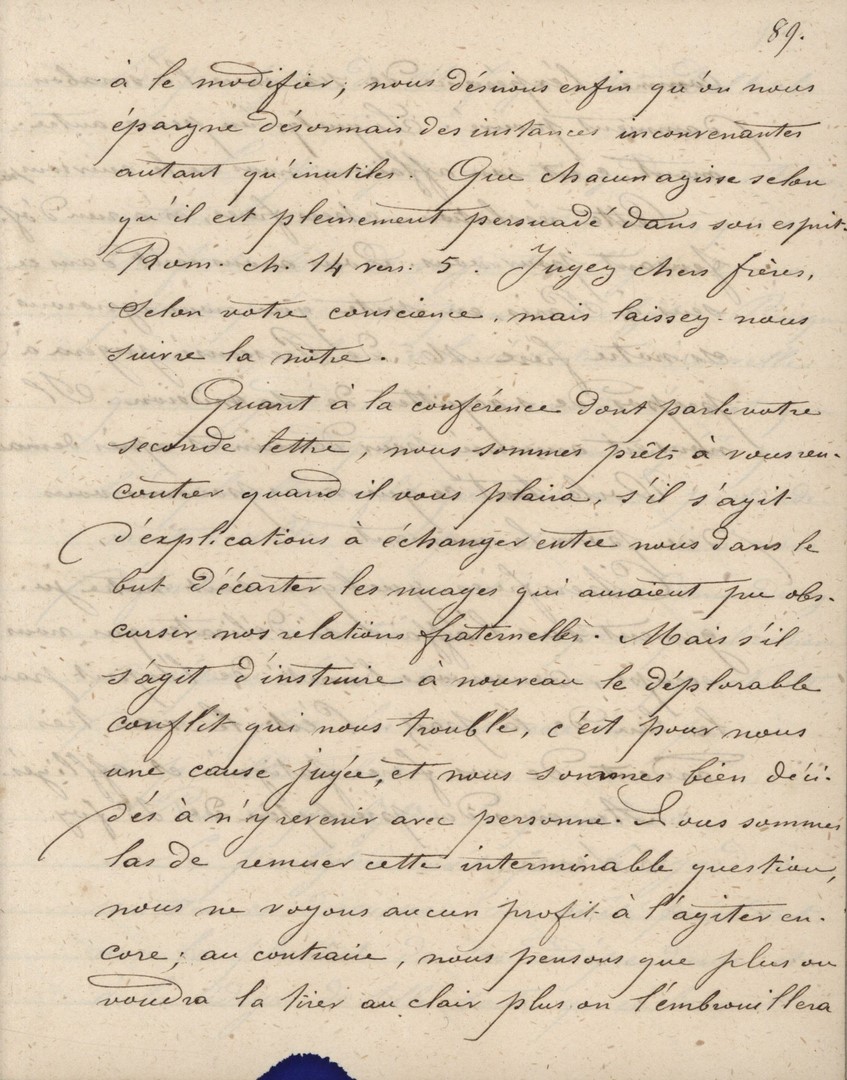 89.
à le modifier; nous désirons enfin qu'on nous
épargne désormais des instances inconvenantes
autant qu'inutiles. Que chacun agisse selon
qu'il est pleinement persuadé dans son esprit.
Rom. ch. 14 vers. 5. Jugez chers frères,
selon votre conscience, mais laissez-nous
suivre la nôtre.
Quant à la conférence dont parle votre
seconde lettre, nous sommes prêts à vous ren-
contrer quand il vous plaira, s'il s'agit
d'explications à échanger entre nous dans le
but d'écarter les nuages qui auraient pu obs-
curcir nos relations fraternelles. Mais s'il
s'agit d'instruire à nouveau le déplorable
conflit qui nous trouble, c'est pour nous
une cause jugée, et nous sommes bien déci-
dés à n'y revenir avec personne. Nous sommes
las de remuer cette interminable question,
nous ne voyons aucun profit à l'agiter en-
core; au contraire, nous pensons que plus on
voudra la tirer au clair plus on l'embrouillera